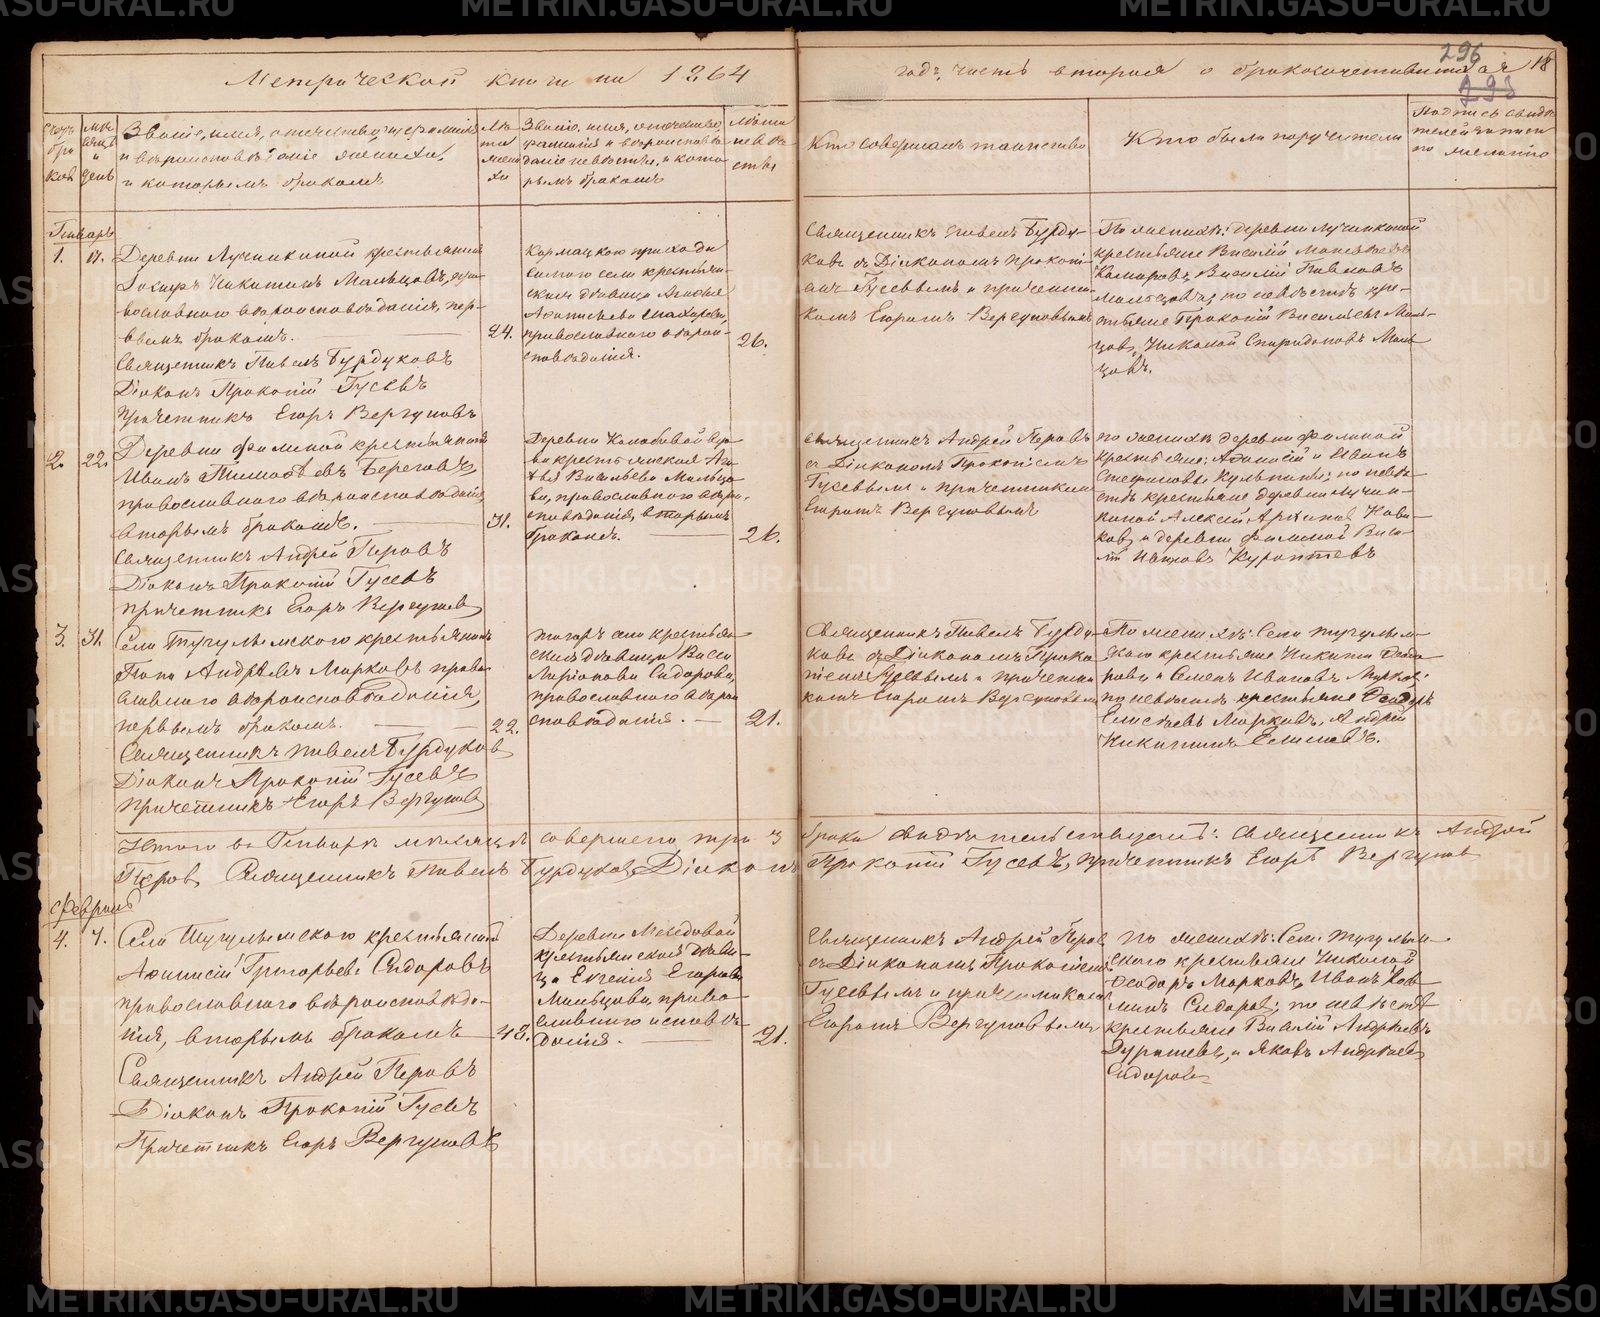 METRIKI.GASO-URAL.RU
296
293
18
Метрической книги на 1864
годъ, часть вторая о бракосочетавшихся
Счетъ браковъ
Мѣсяцъ и день
Званіе, имя, отчество, фамилія
и вѣроисповѣданіе жениха,
и которымъ бракомъ
Лѣта жениха
Званіе, имя, отчество,
фамилія и вѣроисповѣ-
даніе невѣсты, и кото-
рымъ бракомъ
Лѣта невѣсты
Кто совершалъ таинство
Кто были поручители
Подпись свидѣ-
телей записи
по желанію
Январь
1.
Деревни Лучинкиной крестьянинъ
Никитинъ Мальцовъ, пра-
вославнаго вѣроисповѣданія, пер-
вымъ бракомъ.
24.
Священникъ Павелъ Бурдуковъ
Діаконъ Прокопій Гусевъ
Причетникъ Егоръ Вергуновъ
Кармацкаго прихода
села крестьян-
ская дѣвица
православнаго вѣрои-
сповѣданія.
26.
Священникъ Павелъ Бурду-
ковъ съ Діакономъ Прокопі-
емъ Гусевымъ и причетни-
комъ Егоромъ Вергуновымъ
По женихѣ: деревни Лучинкиной
крестьяне Василій Матвѣевъ
Комаровъ, Василій Павловъ
Мальцовъ; по невѣстѣ кре-
стьяне Прокопій Васильевъ Маль-
цовъ, Николай Спиридоновъ Маль-
цовъ.
2.
22.
Деревни Филиной крестьянинъ
Иванъ Тимофѣевъ Береговъ
православнаго вѣроисповѣданія
вторымъ бракомъ.
31.
Священникъ Андрей Перовъ
Діаконъ Прокопій Гусевъ
причетникъ Егоръ Вергуновъ
Деревни вдо-
ва крестьянская Ага-
Васильева Мальцо-
ва, православнаго вѣрои-
сповѣданія, вторымъ
бракомъ.
26.
Священникъ Андрей Перовъ
съ Діакономъ Прокопіемъ
Гусевымъ и причетникомъ
Егоромъ Вергуновымъ
по женихѣ деревни Филиной
крестьяне; и Иванъ
по невѣ-
стѣ крестьяне деревни Лучин-
киной Алексѣй Архиповъ Нови-
ковъ и деревни Филиной Васи-
лій
3.
31.
Села Тугулымскаго крестьянинъ
Андрѣевъ Марковъ право-
славнаго вѣроисповѣданія,
первымъ бракомъ.
22.
Священникъ Павелъ Бурдуковъ
Діаконъ Прокопій Гусевъ
Причетникъ Егоръ Вергуновъ
Тогожъ села крестьян-
ская дѣвица Васса
Ларіонова Сидорова,
православнаго вѣрои-
сповѣданія.
21.
Священникъ Павелъ Бурду-
ковъ съ Діакономъ Проко-
піемъ Гусевымъ и причетни-
комъ Егоромъ Вергуновымъ
По женихѣ: Села Тугулым-
скаго крестьяне Никита Ѳедо-
ровъ и Семенъ Ивановъ Марковъ;
по невѣстѣ крестьяне Ѳеодоръ
Елисѣевъ Марковъ, Андрей
Никитинъ
Итого въ Январѣ мѣсяцѣ совершено три 3 брака Свидѣтельствуемъ: Священникъ Андрей
Перовъ Священникъ Павелъ Бурдуковъ Діаконъ Прокопій Гусевъ, причетникъ Егоръ Вергуновъ
Февраль
4.
7.
Села Тугулымскаго крестьянинъ
Аѳанасій Григорьевъ Сидоровъ
православнаго вѣроисповѣда-
нія, вторымъ бракомъ
42.
Священникъ Андрей Перовъ
Діаконъ Прокопій Гусевъ
Причетникъ Егоръ Вергуновъ
Деревни
крестьянская дѣви-
ца Евгенія Егорова
Мальцова, право-
славнаго исповѣ-
данія.
21.
Священникъ Андрей Перовъ
съ Діакономъ Прокопіемъ
Гусевымъ и причетникомъ
Егоромъ Вергуновымъ
по женихѣ: Села Тугулым-
скаго крестьяне Николай
Ѳеодоровъ Марковъ, Иванъ
Сидоровъ; по невѣстѣ
крестьяне Василій Андрѣевъ
и Яковъ Андрѣевъ
Сидоровъ